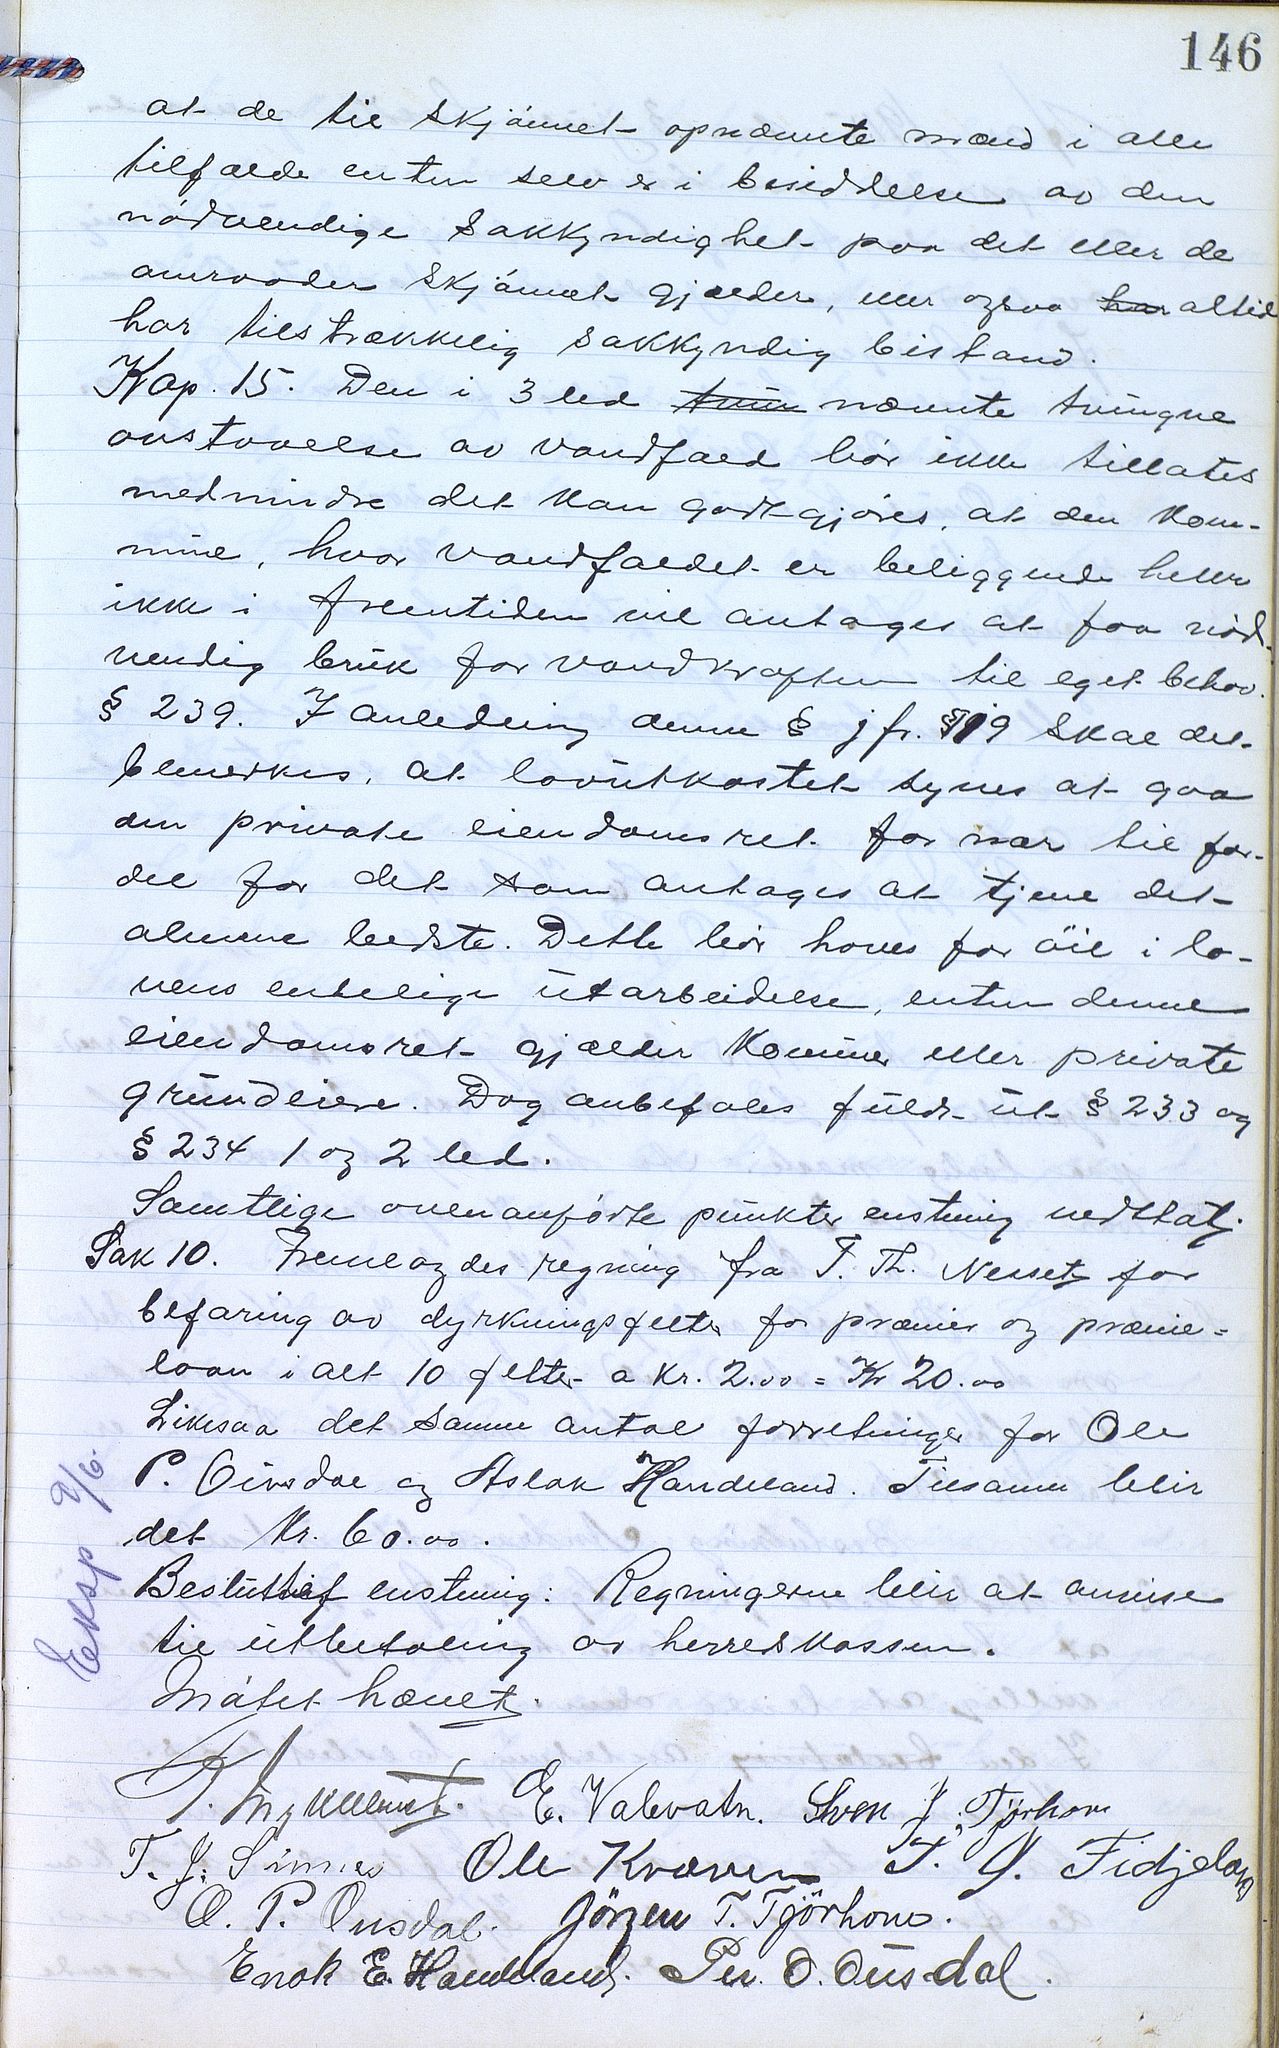 146
at de til skjönnet opnævnte mænd i alle
tilfælde enten selv er i besiddelse av den
nödvendige sakkyndighet paa det eller de
omraader skjönnet gjælder, eller ogsaa har altid
har tilstrækkelig sakkyndig bistand.
Kap. 15. Den i 3 led nævnte tvungne
avstaaelse av vandfald bör ikke tillates
medmindre det kan godtgjöres, at den kom-
mune, hvor vandfaldet er beliggende heller
ikke i fremtiden vil antages at faa nöd-
vendig bruk for vandkraften til eget behov.
§ 239. I anledning denne § jfr. § 119 skal det
bemerkes, at lovutkastet synes at gaa
den private eiendomsret for nær til for-
del for det som antages at tjene det
almene bedste. Dette bör haves for öie i lo-
vens endelige utarbeidelse, enten denne
eiendomsret gjælder kommune eller private
grundeiere. Dog anbefales fuldt ut § 233 og
§ 234 1 og 2 led.
Samtlige ovenanförte punkter enstemig vedtat.
Sak 10. Fremlagdes regning fra T. Th. Nesset for
befaring av dyrkningsfelter for præmier og præmie-
laan i alt 10 felter a kr. 2.00 = Kr 20.00
Likesaa det samme antal forretninger for Ole
P. Ousdal og Aslak Handeland. Tilsammen blir
det Kr. 60.00.
Eksp 9/6.
Besluttet enstemig: Regningerne blir at anvise
til utbetaling av herredskassen.
Mötet hævet.
E. Valevatn. Sven J. Tjörhom
T. J. Sinnes Ole Kvæven T. J. Fidjeland
O. P. Ousdal. Jörgen T. Tjörhom.
Enok E. Handeland. Per. O. Ousdal.